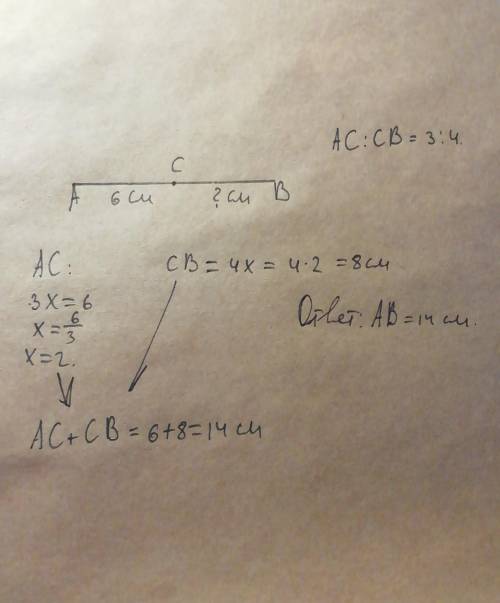 AC:CB=3:4.
C
A 6 см ? см B
AC:
3x=6
x=6/3
x=2.
CB=4x=4·2=8см
Ответ: AB=14 см.
AC+CB=6+8=14 см